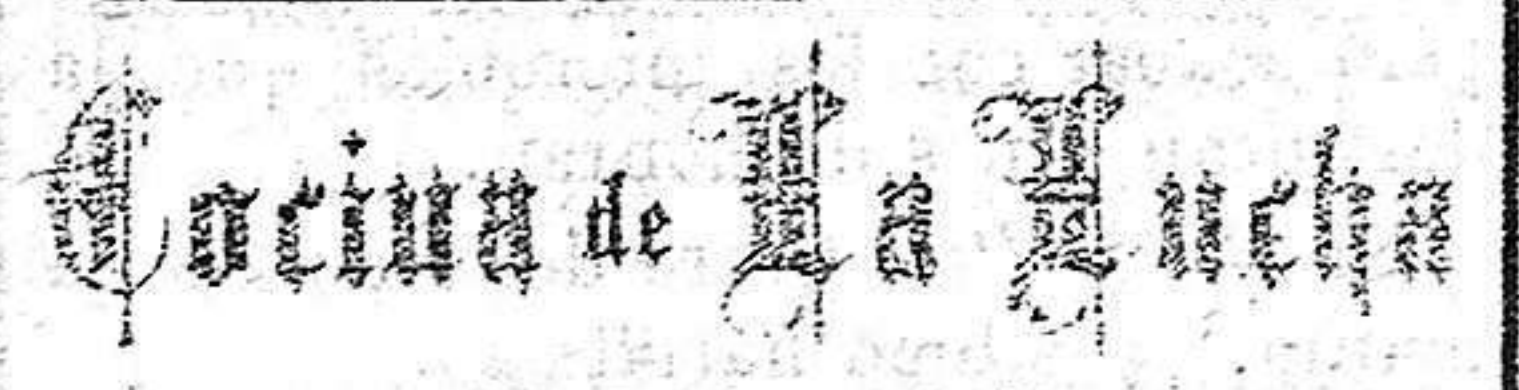 Cocina de La Lucha